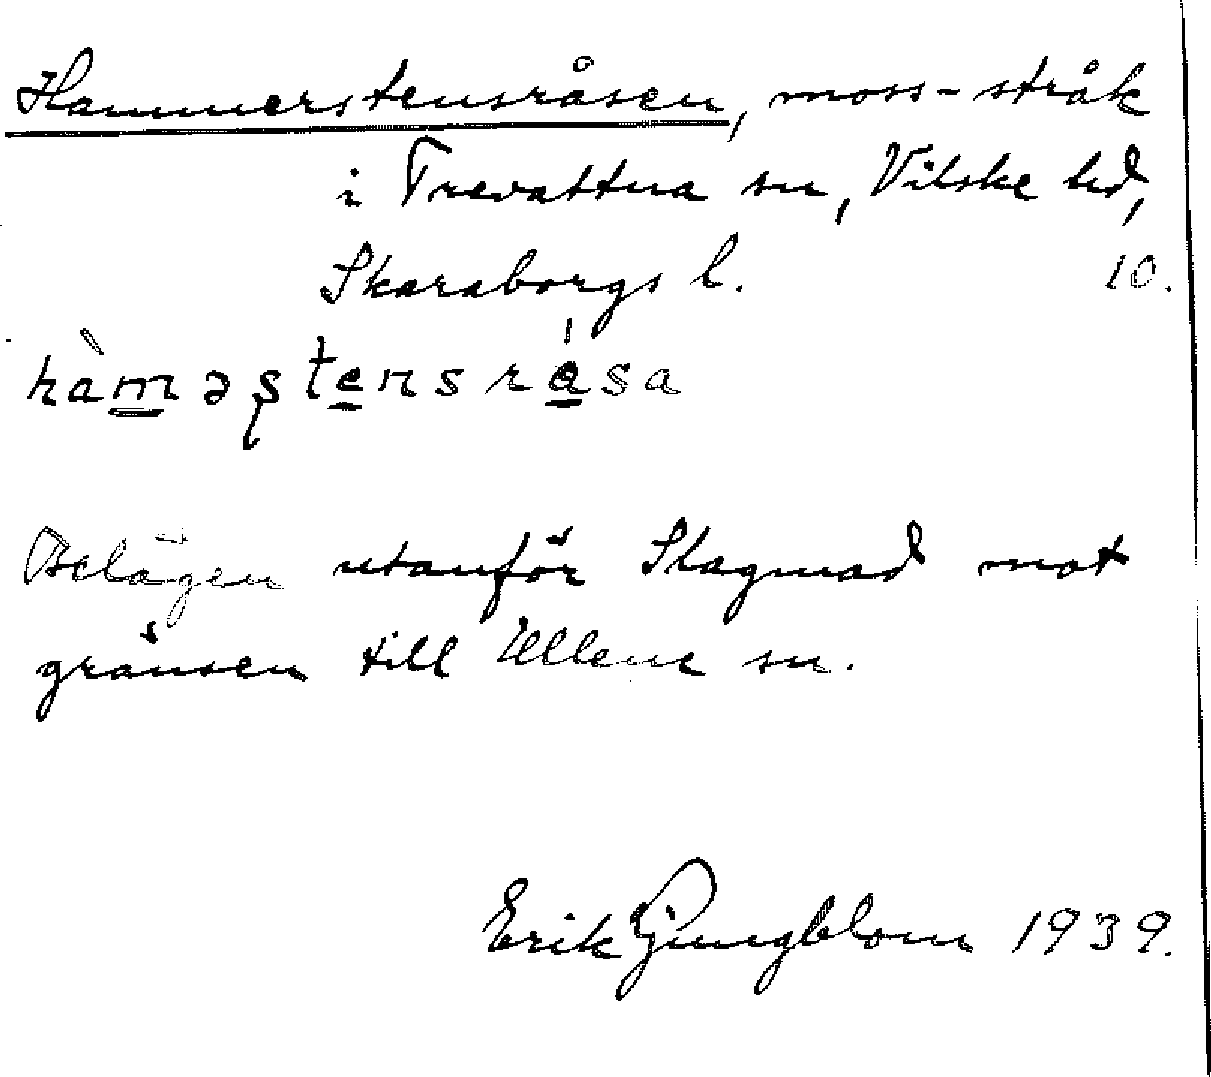 Hammerstensråsen, moss-stråk
i Trevattna sn, Vilske hd,
Skaraborgs l. 10.
hàməstensråsa
Belägen utanför Skagmad mot
gränsen till Ullene sn.
Erik Ljungblom 1939.